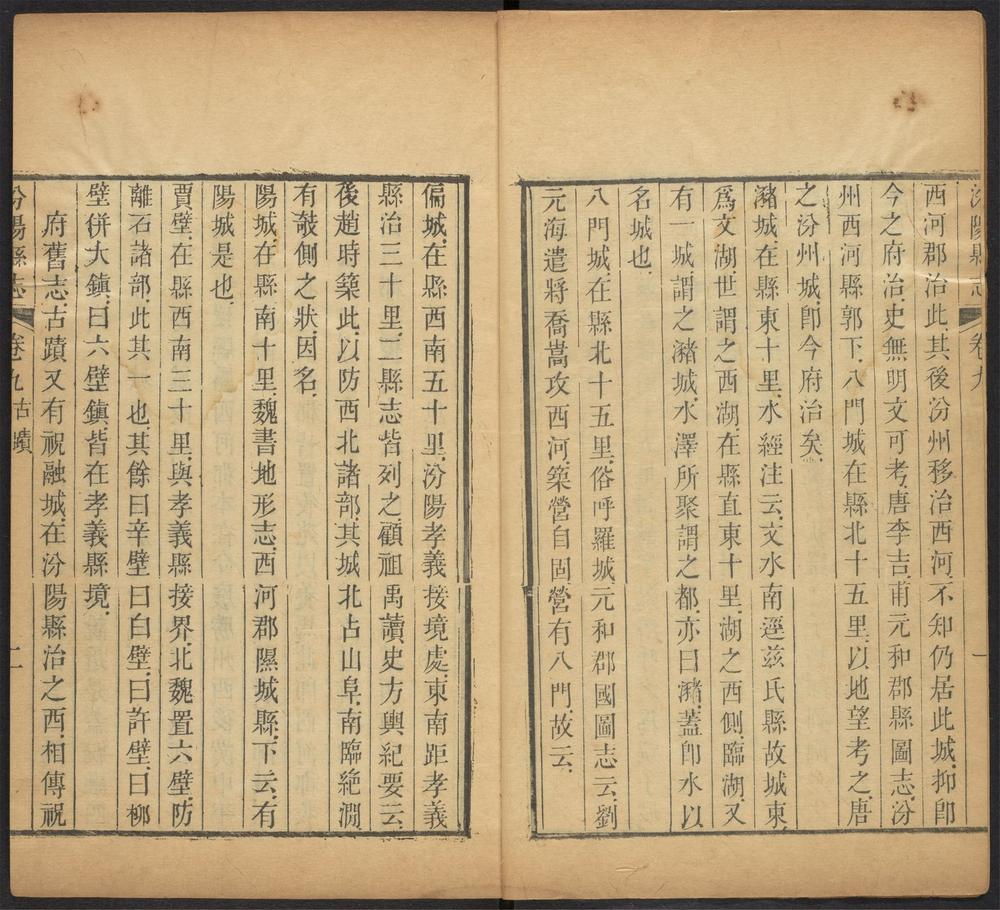 汾陽縣志 卷九 一
西河郡治此其後汾州移治西河不知仍居此城抑卽
今之府治史無明文可考唐李吉甫元和郡縣圖志汾
州西河縣郭下八門城在縣北十五里以地望考之唐
之汾州城卽今府治矣
瀦城在縣東十里水經注云文水南逕茲氏縣故城東
爲文湖世謂之西湖在縣直東十里湖之西側臨湖又
有一城謂之瀦城水澤所聚謂之都亦曰瀦蓋卽水以
名城也
八門城在縣北十五里俗呼羅城元和郡國圖志云劉
元海遣將喬嵩攻西河築營自固營有八門故云
偏城在縣西南五十里汾陽孝義接境處東南距孝義
縣治三十里二縣志皆列之顧祖禹讀史方輿紀要云
後趙時築此以防西北諸部其城北占山阜南臨絶澗
有攲側之狀因名
陽城在縣南十里魏書地形志西河郡隰城縣下云有
陽城是也
賈壁在縣西南三十里與孝義縣接界北魏置六壁防
離石諸部此其一也其餘曰辛壁曰白壁曰許壁曰柳
壁併大鎭曰六壁鎭皆在孝義縣境
府舊志古蹟又有祝融城在汾陽縣治之西相傳祝
汾陽縣志 卷九 古蹟 二